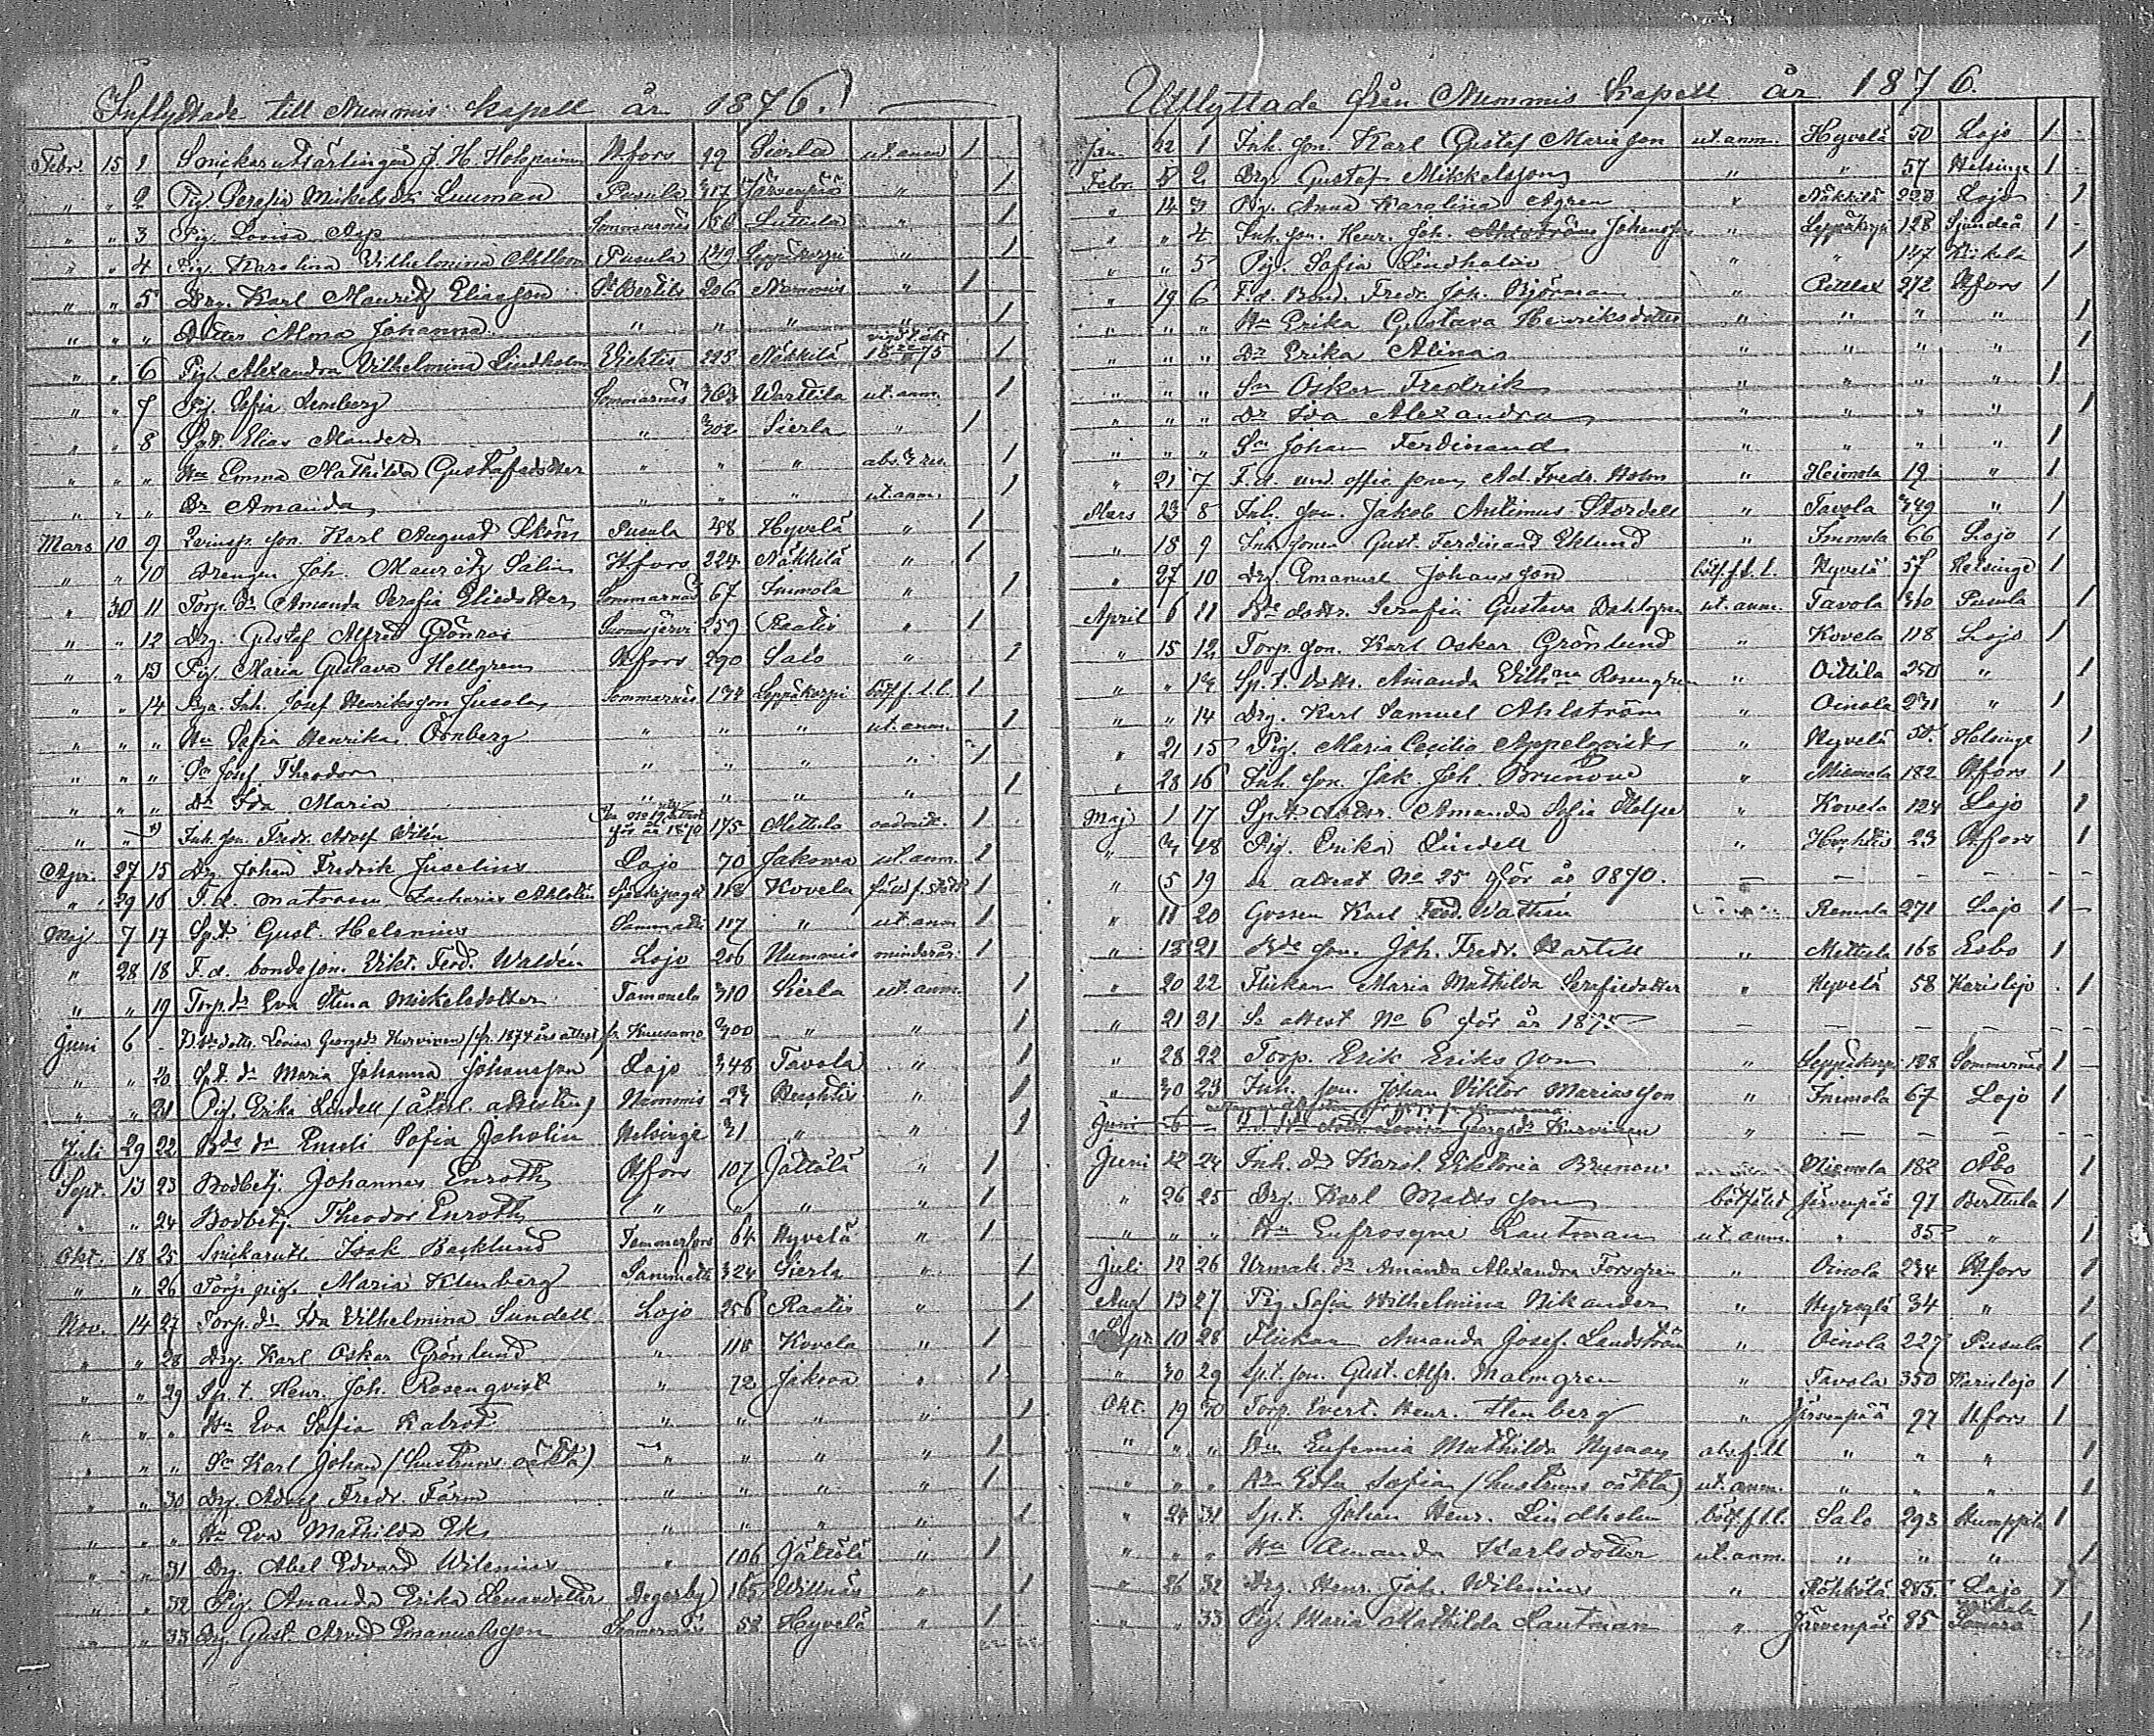 Inflyttade till Nummis kapell år 1876.
Febr. 15 1 Snickareutlärlingen J. H. Holopainen Hfors 19 Sierla ut. anm. 1
" " 2 Pig. Serafia Mickelsdr Luuman Pusula 317 Järvenpää " 1
" " 3 Pig. Lovisa Asp Sommarnäs 156 " 1
" " 4 Pig. Karolina Vilhelmina Pusula 149 Leppäkorpi " 1
" " 5 Drg. Karl Mauritz Eliasson St Bertils 206 Nummis " 1
" " " Dotter Alma Johanna " " " " 1
" " 6 Pig. Alexandra Vilhelmina Lindholm Wichtis 225 Näkkilä 1875 1
" " 7 Pig. Sofia Lemberg Sommarnäs 363 Warttila ut. anm. 1
" " 8 Spt. Elias Mander " 302 Sierla " 1
" " " Hu Emma Mathilda Gustafsdotter " " " abs. 2 res. 1
" " " Dr Amanda " " " ut. anm. 1
Mars 10 9 son. Karl August Ekström Pusula 48 Hyvelä " 1
" " 10 Drengen Joh. Mauritz Salin Hfors 224 Näkkilä " 1
" 30 11 Torp. Dr Amanda Serafia Eliedotter Sommarnäs 67 Inimola " 1
" " 12 Drg. Gustaf Alfred Grönroos Suomusjärvi 259 Raatis " 1
" " 13 Pig. Maria Gustava Hellgren Hfors 290 Salo " 1
" " 14 Inh. Josef Henriksson Jusola Sommarnäs 134 Leppäkorpi bötf. f. l. l. 1
" " " Hu Sofia Henrika Öönberg " " " ut. anm. 1
" " " Sn Josef Theodor " " " " 1
" " " Dr Ida Maria " " " " 1
" " " Inh. son. Fredr. Adolf Wilén för år 1870 175 Mettula 1
Apr. 27 15 Drg. Johan Fredrik Juselius Lojo 70 Jakova ut. anm. 1
" 29 16 F. d. matrosen Zacharias Ahlstén 118 Kovela 1
Maj 7 17 Spt. Gust. Helenius Sammatti 117 " ut. anm 1
" 28 18 F. d. bondeson. Vikt. Ferd. Waldén Lojo 206 Nummis minderår. 1
" " 19 Torp. dr Eva Stina Mickelsdotter Tammela 310 Sierla ut. anm. 1
Juni 6 . dottr. Lovisa Georgsdr Kurvinen (fr. 1874 års attest) fr. Kuusamo 300 " " 1
" " 20 Spt. dr Maria Johanna Johansson Lojo 348 Tavola " 1
" " 21 Pig. Erika Lindell (återl. attesten) Nummis 23 Huhtis " 1
Juli 29 22 Bde dr Emeli Sofia Jaholin Helsinge 31 " " 1
Sept. 13 23 Bodbetj. Johannes Enroth Hfors 107 Jättölä " 1
" " 24 Bodbetj. Theodor Enroth " " " " 1
Okt. 18 25 Snickareutl. Isak Backlund Tammerfors 64 Hyvelä " 1
" " 26 Torp. pig. Maria Klemberg Sammatti 324 Sierla " 1
Nov. 14 27 Torp. dr Ida Vilhelmina Sundell Lojo 256 Raatis " 1
" " 28 Drg. Karl Oskar Grönlund " 118 Kovela " 1
" " 29 Sp. t. Henr. Joh. Rosenqvist " 72 Jakova " 1
" " " Hu Eva Sofia " " " " 1
" " " Sn Karl Johan (hustruns oäkta) " " " " 1
" " 30 Drg. Adolf Fredr. Färm " " " " 1
" " " Hu Eva Mathilda Ek " " " " 1
" " 31 Drg. Abel Edvard Wilenius " 106 Jättölä " 1
" " 32 Pig. Amanda Erika Degerby 165 " 1
" " 33 Drg. Gust. Arvid Emanuelsson Sommarnäs 58 Hyvelä " 1
Utflyttade från Nummis kapell år 1876.
Jan. 22 1 Inh. son. Karl Gustaf Mariasson ut. anm. Hyvelä 50 Lojo 1
Febr. 5 2 Drg. Gustaf Mikkelsson " " 57 Helsinge 1
" 14 3 Pig. Anna Karolina Agren " Näkkilä Lojo 1
" " 4 Inh. son. Henr. Joh. Johansson " Leppäkorpi 128 Sjundeå 1
" " 5 Pig. Sofia Lindholm " " 147 Kiikala 1
" 19 6 F. d. Bond. Fredr. Joh. Björkman " 272 Hfors 1
" " " Hu Erika Gustava Henriksdotter " " " " 1
" " " Dr Erika Alina " " " " 1
" " " Sn Oskar Fredrik " " " " 1
" " " Dr Ida Alexandra " " " " 1
" " " Sn Johan Ferdinand " " " " 1
" 21 7 F. d. und. offic. son. Ad. Fredr. Holm " Heimola 19 " 1
Mars 23 8 Inh. son. Jakob Antimus Stordell " Tavola 349 " 1
" 18 9 Inh. sonen Gust. Ferdinand Eklund " Inimola 66 Lojo 1
" 27 10 Drg. Emanuel Johansson bötf. f. l. l. Hyvelä 57 Helsinge 1
April 6 11 Bde dottr. Serafia Gustava Dahlgren ut. anm. Tavola 340 Pusula 1
" 15 12 Torp. son. Karl Oskar Grönlund " Kovela 118 Lojo 1
" " 13 Sp. t. dottr. Amanda Vilhna Rosengren " Oittila 250 " 1
" " 14 Drg. Karl Samuel Ahlström " Oinola 231 " 1
" 21 15 Pig. Maria Cecilia Appelqvist " Hyvelä 54 Helsinge 1
" 28 16 Inh. son. Jak. Joh. Brunou " Miemola 182 Hfors 1
Maj 1 17 Sp.t dottr. Amanda Sofia " Kovela 124 Lojo 1
" 3 18 Pig. Erika Lindell " Huhtis 23 Hfors 1
" 5 19 se attest No 25 för år 1870. – – – – –
" 11 20 Gossen Karl Fred. Wathén Remala 271 Lojo 1
" 13 21 Bde son. Joh. Fredr. " Mettula 168 Esbo 1
" 20 22 Flickan Maria Mathilda Serafiedotter " Hyvelä 58 Karislojo 1
" 21 21 Se attest No 6 för år 1875 – – – – –
" 28 22 Torp. Erik Eriksson " Leppäkorpi 128 Sommarnäs 1
" 30 23 Inh. son. Johan Viktor Mariasson " Inimola 67 Lojo 1
Juni 6 – Lovisa Georgsdr Kurvinen " – – – –
Juni 12 24 Inh. dr Karol. Viktoria Brunou Miemola 182 Åbo 1
" 26 25 Drg. Karl Mattsson bötfälld Järvenpää 91 Berttula 1
" " " Hu Eufrosyne Lautman ut. anm. " 85 " 1
Juli 12 26 Urmak. dr Amanda Alexandra Forsgren " Oinola 234 Hfors 1
Aug 13 27 Pig. Sofia Wilhelmina Nikander " 34 " 1
Sept. 10 28 Flickan Amanda Josef. Landström " Oinola 227 Pusula 1
" 30 29 Sp.t. son. Gust. Alfr. Malmgren " Tavola 350 Karislojo 1
Okt. 19 30 Torp. Evert. Henr. Stenberg " Järvenpää 97 Hfors 1
" " " Hu Eufemia Mathilda Nyman " " " 1
" " " Dr Edla Sofia (hustruns oäkta) ut. anm. " " " 1
" 24 31 Sp.t. Johan Henr. Lindholm bötf. f. l. l. Salo 293 Humppila 1
" " " Hu Amanda Karlsdotter ut. anm. " " " 1
" 26 32 Drg. Henr. Joh. Wilenius " 285 Lojo 1
" " 33 Pig. Maria Mathilda Lautman " Järvenpää 85 Somero 1